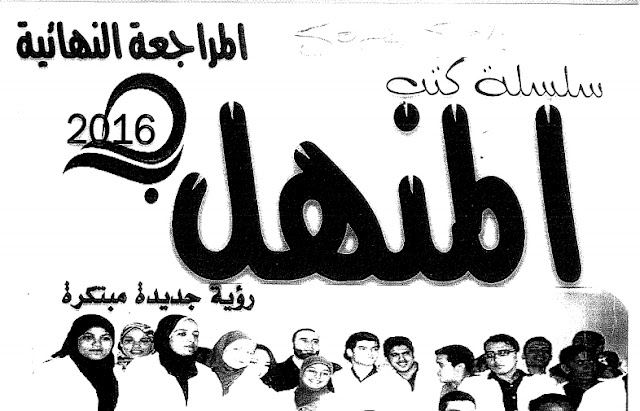 المراجعة النهائية
سلسلة كتب
2016
المنهل
رؤية جديدة مبتكرة